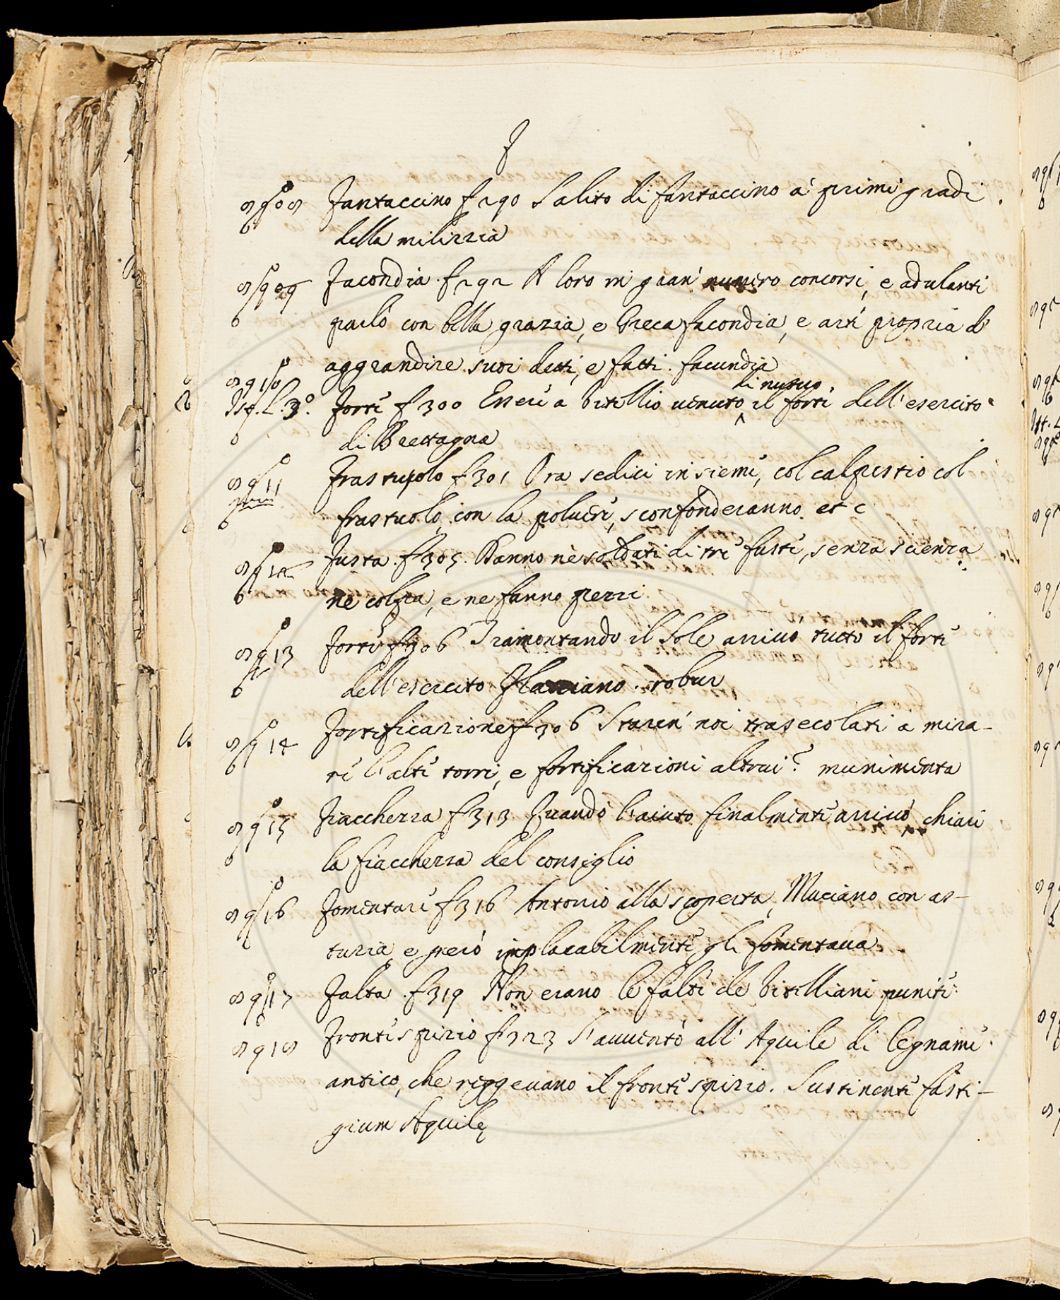 F
8908 Fantaccino f 290 Salito di fantaccino a' primi gradi
della milizzia
8909 Facondia f 292 A loro in gran' numero concorsi, e adulanti
parlò con bella grazia, e Greca facondia, e arte propria d'
aggrandire suoi detti, e fatti. facundia
8910
Ist. L. 3°. Forte f 300 Erasi a Vitellio venuto il forte dell'esercito
di nuovo
di Brettagna
8911 Frastuolo f 301 Ora sedici insieme, col calpestio col
frastuolo, con la polvere, sconfonderanno et c
8912 Fusta f 305. Hanno ne soldati di tre fusti, senza scienza
ne colpa, e ne fanno pezzi
8913 Forte f 306 Tramontando il Sole arrivò tutto il forte
dell'esercito Flaviano. robur
8914 Fortificazione f 306 Staren' noi trasecolati a mira-
re l'alte torri, e fortificazioni altrui? munimenta
8915 Fiacchezza f 313 Quando l'aiuto finalmente arrivò, chiarì
la fiacchezza del consiglio
8916 Fomentare f 316 Antonio alla scoperta, Muciano con as-
tuzia, e però implacabilmente gli fomentava
8917 Falta f 319 Non erano le falte de Vitelliani punite
8918 Frontispizio f 323 S'avventò all'Aquile di legname
antico, che reggevano il frontispizio. Sustinentes fasti-
gium Aquilę